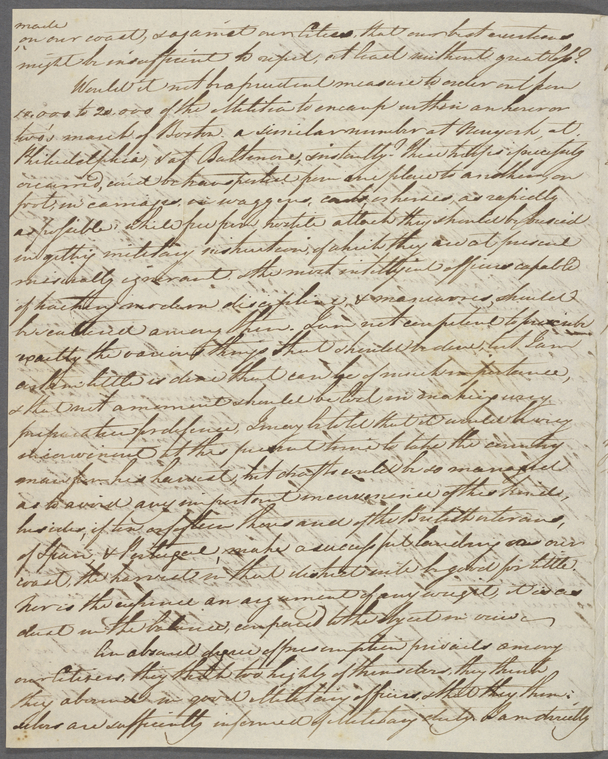 made
on our coast, & against our Cities, that our best exertions
might be insufficient to repel, at least without great loss?
Would it not be a prudent measure to order out from
15,000 to 20,000 of the Militia to encamp within an hour or
two's march of Boston. a similar number at Newyork, at
Philadelphia, & at Baltimore, instantly? These troops
might be transported from one place to another, on
foot, in carriages, or waggons, or horses, as rapidly
as possible. While free from hostile attack they should be
in getting military instruction of which they are at present
miserably ignorant. The most intelligent officers capable
of teaching modern discipline, & manœuvres, should
be among them. I am not competent to
exactly the various things that should be done, but I am
little is done that can be of much importance,
& that not a moment should be lost in making
preparation for defence. I may be told that it would be very
inconvenient at this present time to take the country
man from his harvest, but drafts could be so managed
as to avoid any important inconvenience of this kind,
besides, if ten or fifteen thousand of the British veterans,
of Spain & Portugal, make a successful landing on our
coast, the harvest in that district will be good for little.
Nor is the expence an argument of any weight, it is as
dust in the balance, compared to the object in view.
An absurd degree of presumption prevails among
our Citizens, they think too highly of themselves, they think
they abound in good Military officers, & that they them-
selves are sufficiently informed of Military duty. I am directly